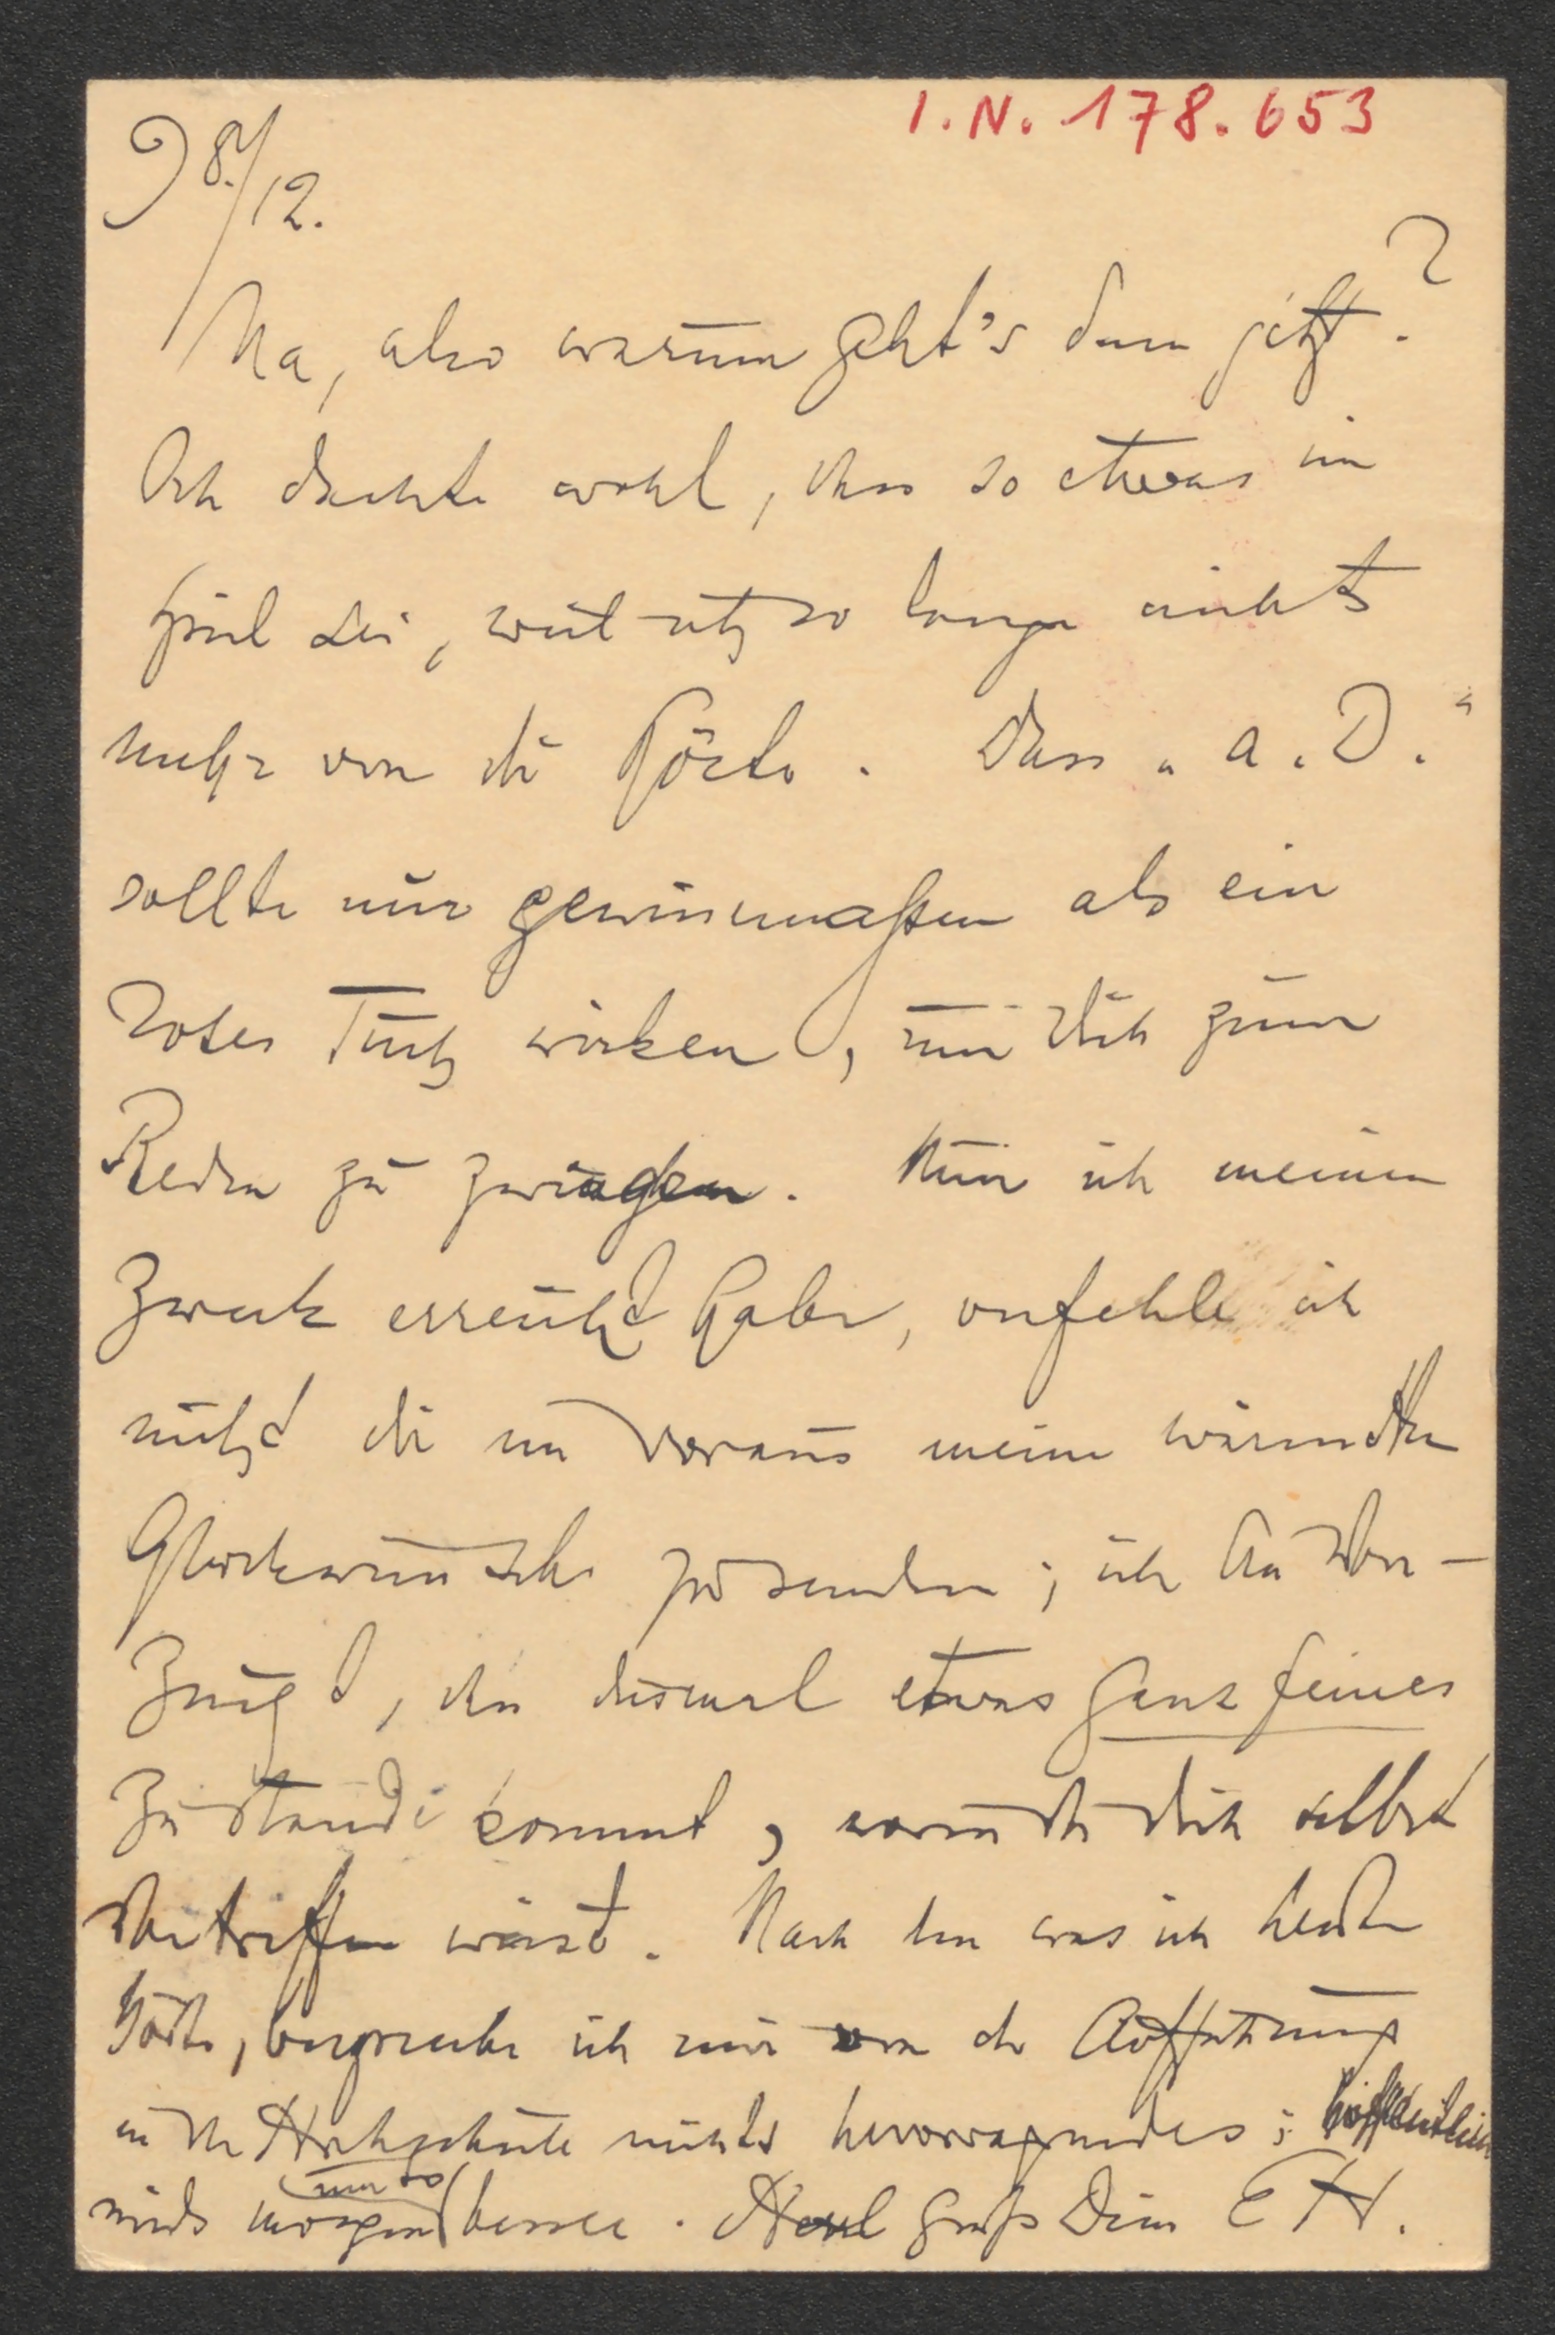 I. N. 178.653
9 8./12.
Na, also warum geht's denn jetzt?
Ich dachte wohl, dass so etwas im
Spiel sei, weil ich so lange nichts
mehr von dir hörte. Dass „a. D."
sollte nur gewissermaßen als ein
rotes Tuch wirken, um dich zum
Reden zu zwingen. Nun ich meinen
Zweck erreicht habe, verfehle ich
nicht dir im Voraus meine wärmsten
Glückwünsche zu senden; ich bin über-
zeugt, dass diesmal etwas ganz feines
zu stande kommt, worin du dich selbst
übertreffen wirst. Nach dem was ich heute
hörte, verspreche ich mir von der Aufführung
in der Hochschule nichts hervorragendes; hoffentlich
wird's morgen um so besser. Herzl Gruß Dein E H.